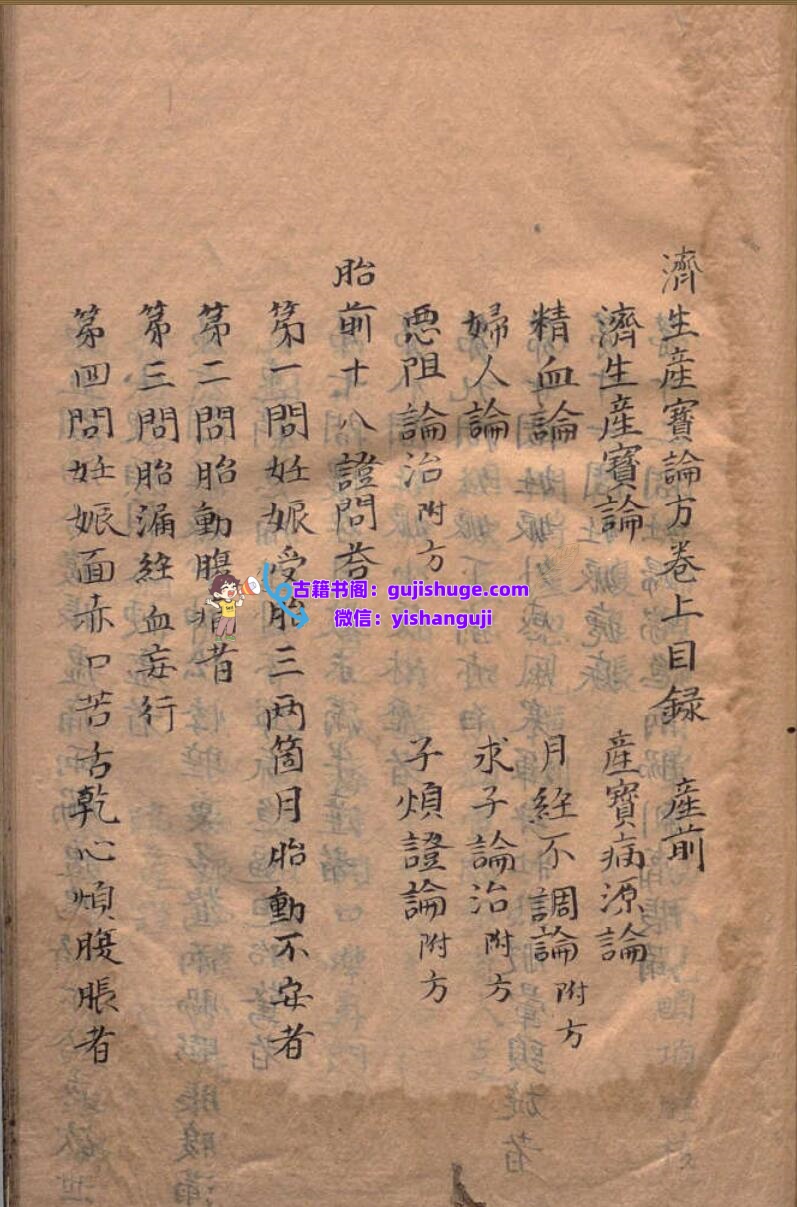 濟生產寶論方卷上目録　產前
濟生產寶論　產寶病源論
精血論　月經不調論附方
婦人論　求子論治附方
惡阻論治附方　子煩證論附方
胎前十八證問荅
第一問妊娠受胎三两箇月胎動不安者
第二問胎動腹痛者
第三問胎漏經血妄行
第四問妊娠面赤口苦舌乾心煩腹脹者
古籍书阁：gujishuge.com
微信：yishanguji